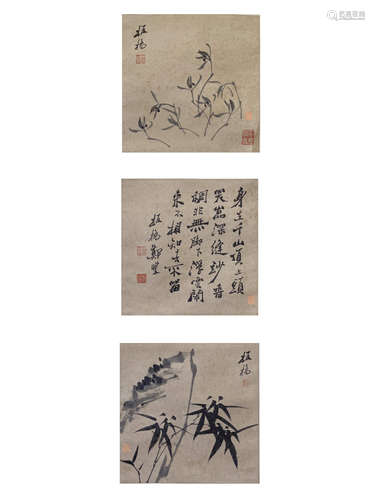 板橋
身在千山頂上頭
突嵓深縫妙香
稠非無脚下浮雲鬧
來不相知去不留
板橋鄭燮
板橋